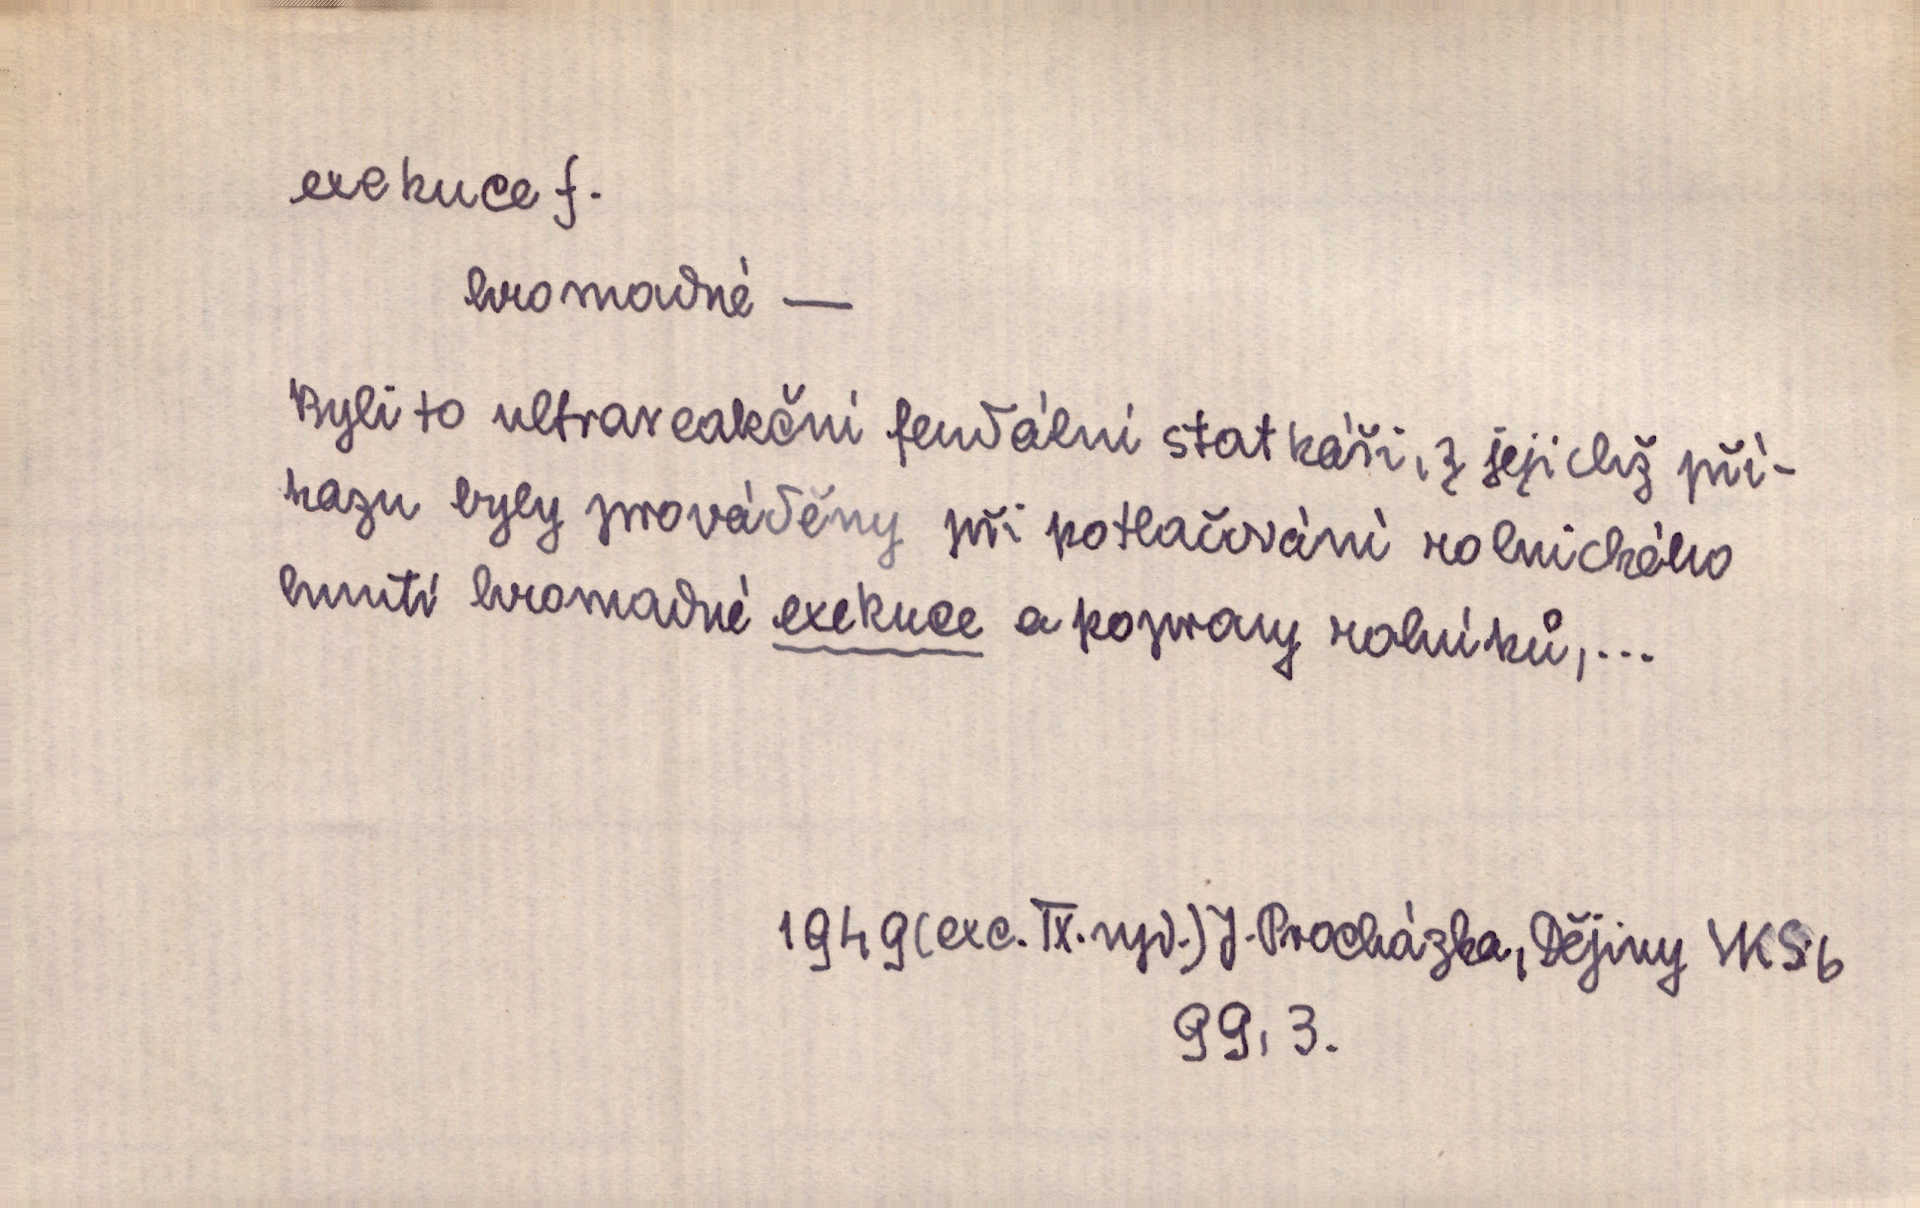 exekuce f.
hromadné —
Byli to ultrareakční feudální statkáři, z jejichž pří-
kazu byly prováděny při potlačování rolnického
hnutí hromadné exekuce a popravy rolníků,...
1949 (exc. IX. vyd.) J. Procházka, Dějiny VKSb
99, 3.